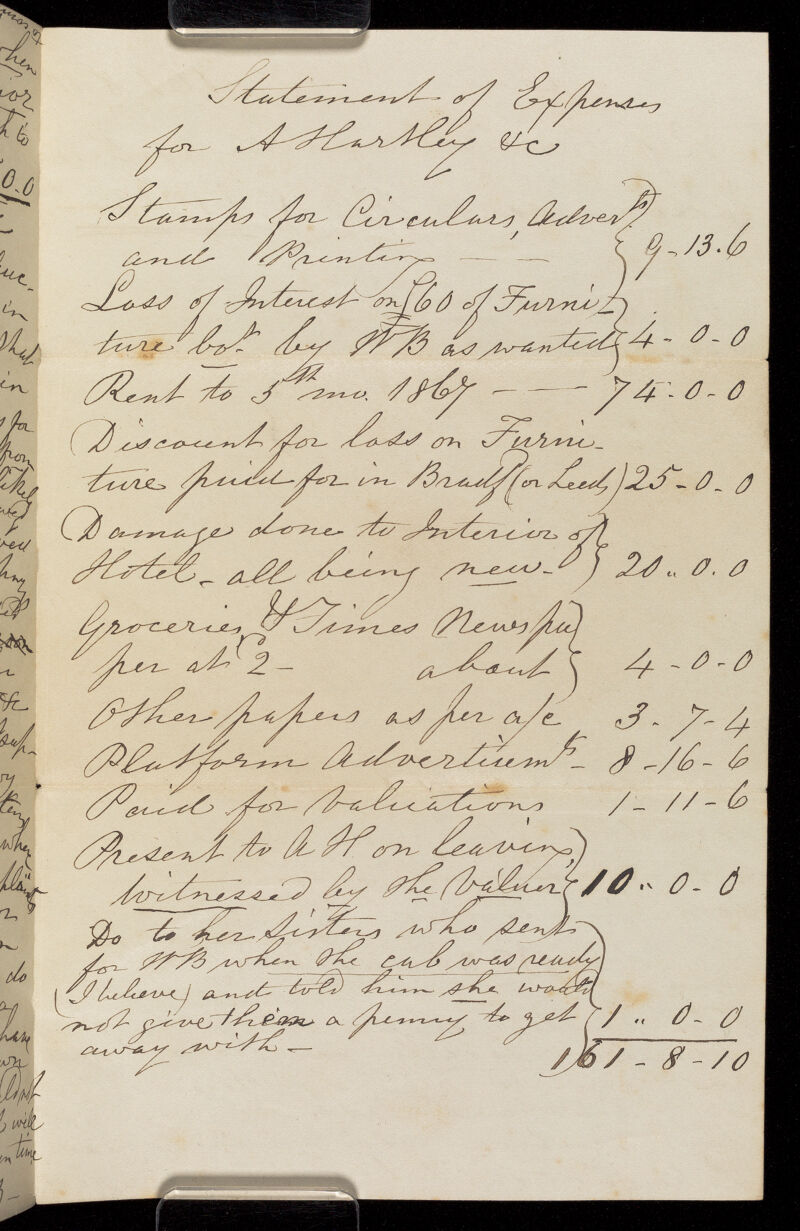 Statement of Expenses
for A Hartley &c
Stamps for Circulars, Advert.ts
and Printing — — 9-13.6
Loss of Interest on £60 of Furni-
ture bo.t by WB as wanted 4-0-0
Rent to 5th mo. 1867 — — 74-0-0
Discount for loss on Furni-
ture paid for in Bradf.d (or Leeds) 25-0-0
Damage done to Interior of
Hotel - all being new - 20"0.0
Groceries, & Times Newspa
per at 2 - about 4-0-0
Other papers as per a/c 3-7-4
Platform Advertisem.ts - 8-16-6
Paid for Valuations 1-11-6
Present to A H on leaving,
Witnessed by the Valuer 10"0-0
Do to her Sisters who sent
for WB when the cab was ready
(I believe) and told him she would
not give them a penny to get 1"0-0
away with -
161-8-10
0.0
when
to
in
that
in
for
from
likely
do
have
will
time